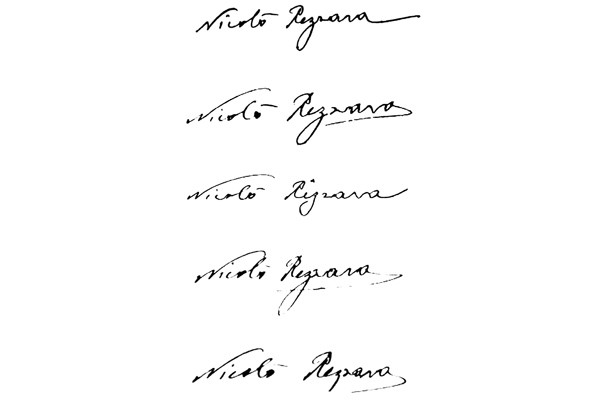 Nicolò Rezzara
Nicolò Rezzara
Nicolò Rezzara
Nicolò Rezzara
Nicolò Rezzara